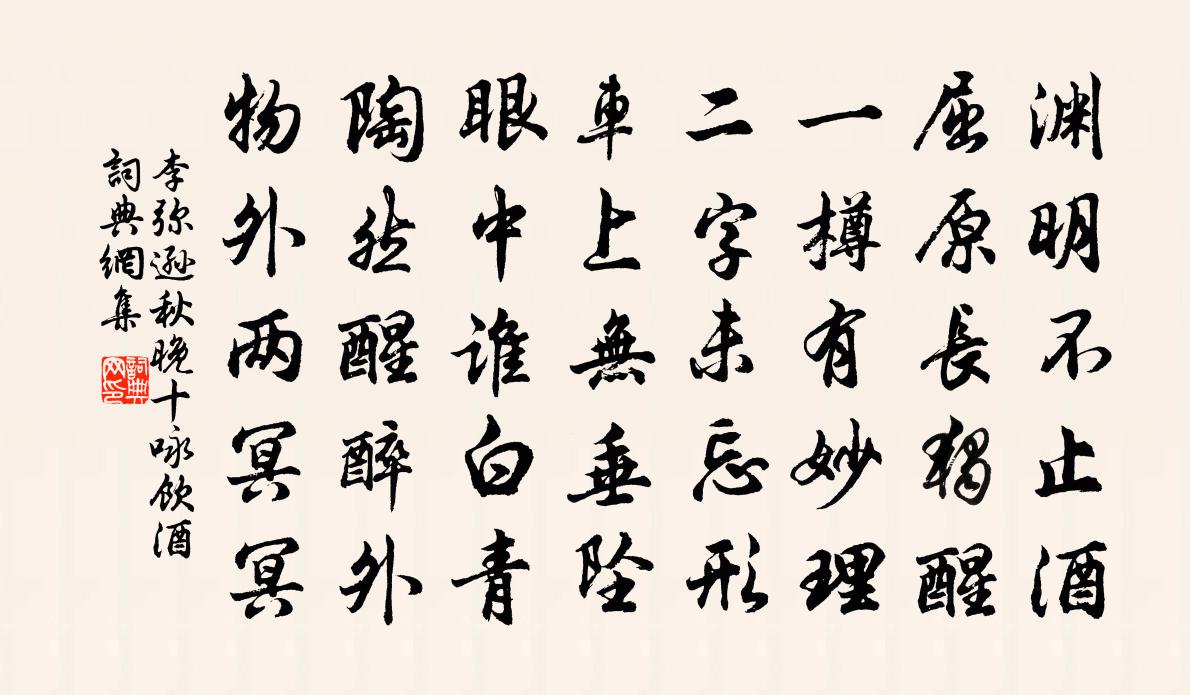 渊明不止酒
屈原長獨醒
一樽有妙理
二字未忘形
車上無垂墜
眼中誰白青
陶然醒醉外
物外两冥冥
李弥遜秋晚十咏飲酒
詞典網集
詞典网印